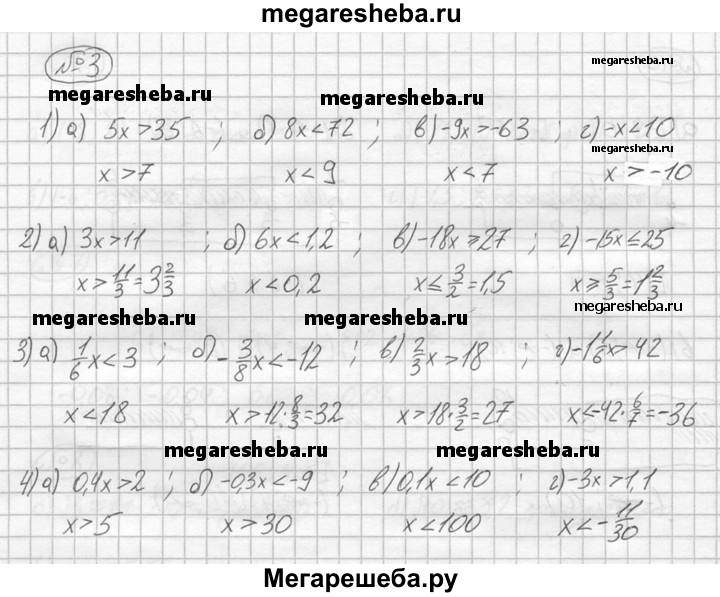 megaresheba.ru
№3
megaresheba.ru
megaresheba.ru
megaresheba.ru
1) а) 5x>35 ; б) 8x<72 ; в) -9x>-63 ; г) -x<10
megaresheba.ru
x>7 x<9 x<7 x>-10
2) а) 3x>11 ; б) 6x<1,2 ; в) -18x≥27 ; г) -15x≤25
x>11/3=3 2/3 x<0,2 x≤3/2=1,5 x≥5/3=1 2/3
megaresheba.ru
megaresheba.ru megaresheba.ru
3) а) 1/6x<3 ; б) -3/8x<-12 ; в) 2/3x>18 ; г) -1 1/6x>42
x<18 x>12·8/3=32 x>18·3/2=27 x<-42·6/7=-36
megaresheba.ru megaresheba.ru
4) а) 0,4x>2 ; б) -0,3x<-9 ; в) 0,1x<10 ; г) -3x>1,1
x>5 x>30 x<100 x<-11/30
Мегарешеба.ру